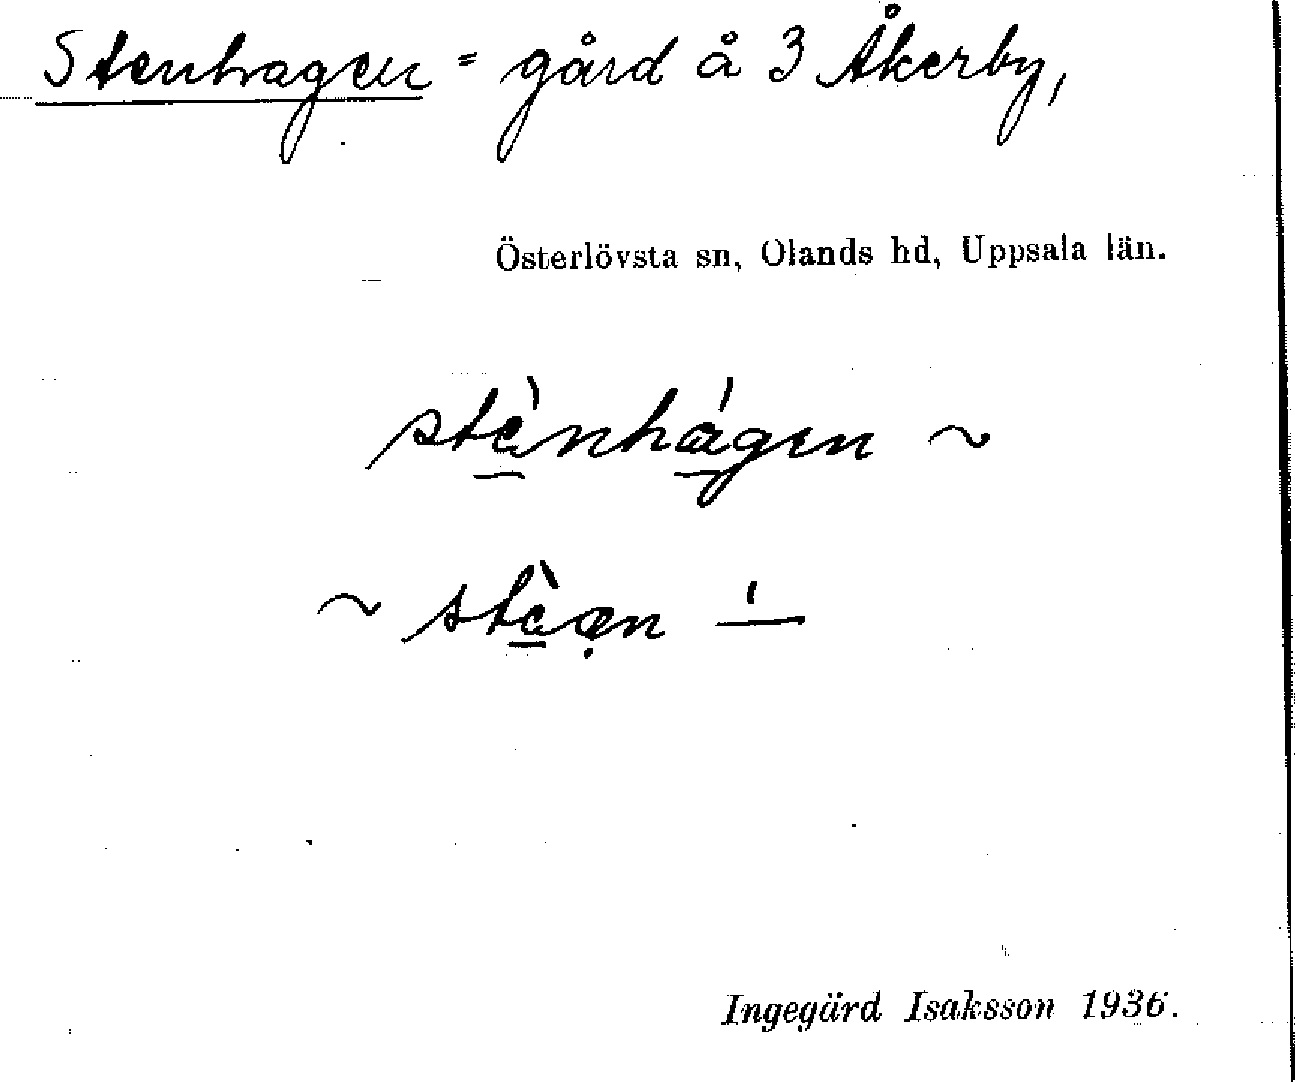 Stenhagen = gård å 3 Åkerby,
Österlövsta sn, Olands hd, Uppsala län.
stè̱nhá̱gen ~
~ stè̱ạen –́
Ingegärd Isaksson 1936.